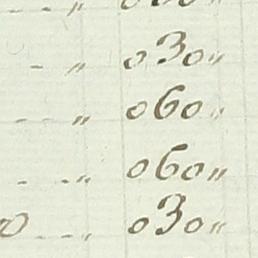 - „ 030„
- - „ 060„
- - „ 060„
- - „ 030„